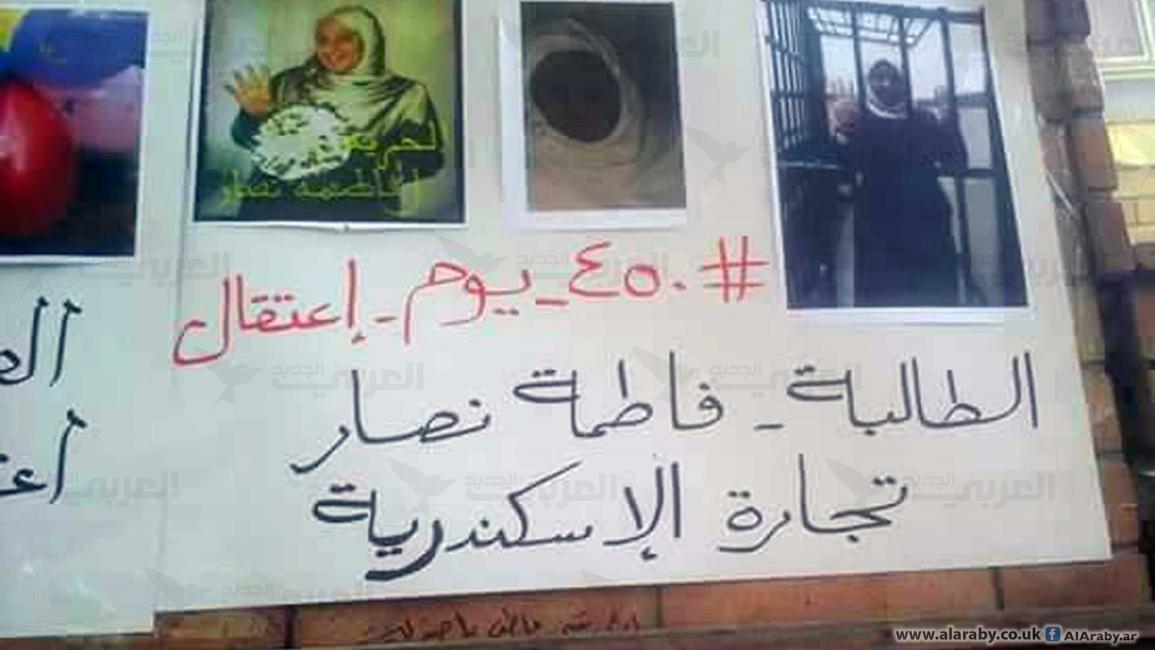 الحرية
لفاطمة نصار
#٤٥٠_يوم_إعتقال
الطالبة - فاطمة نصار
تجارة الإسكندرية
العربي الجديد
www.alaraby.co.uk AlAraby.ar